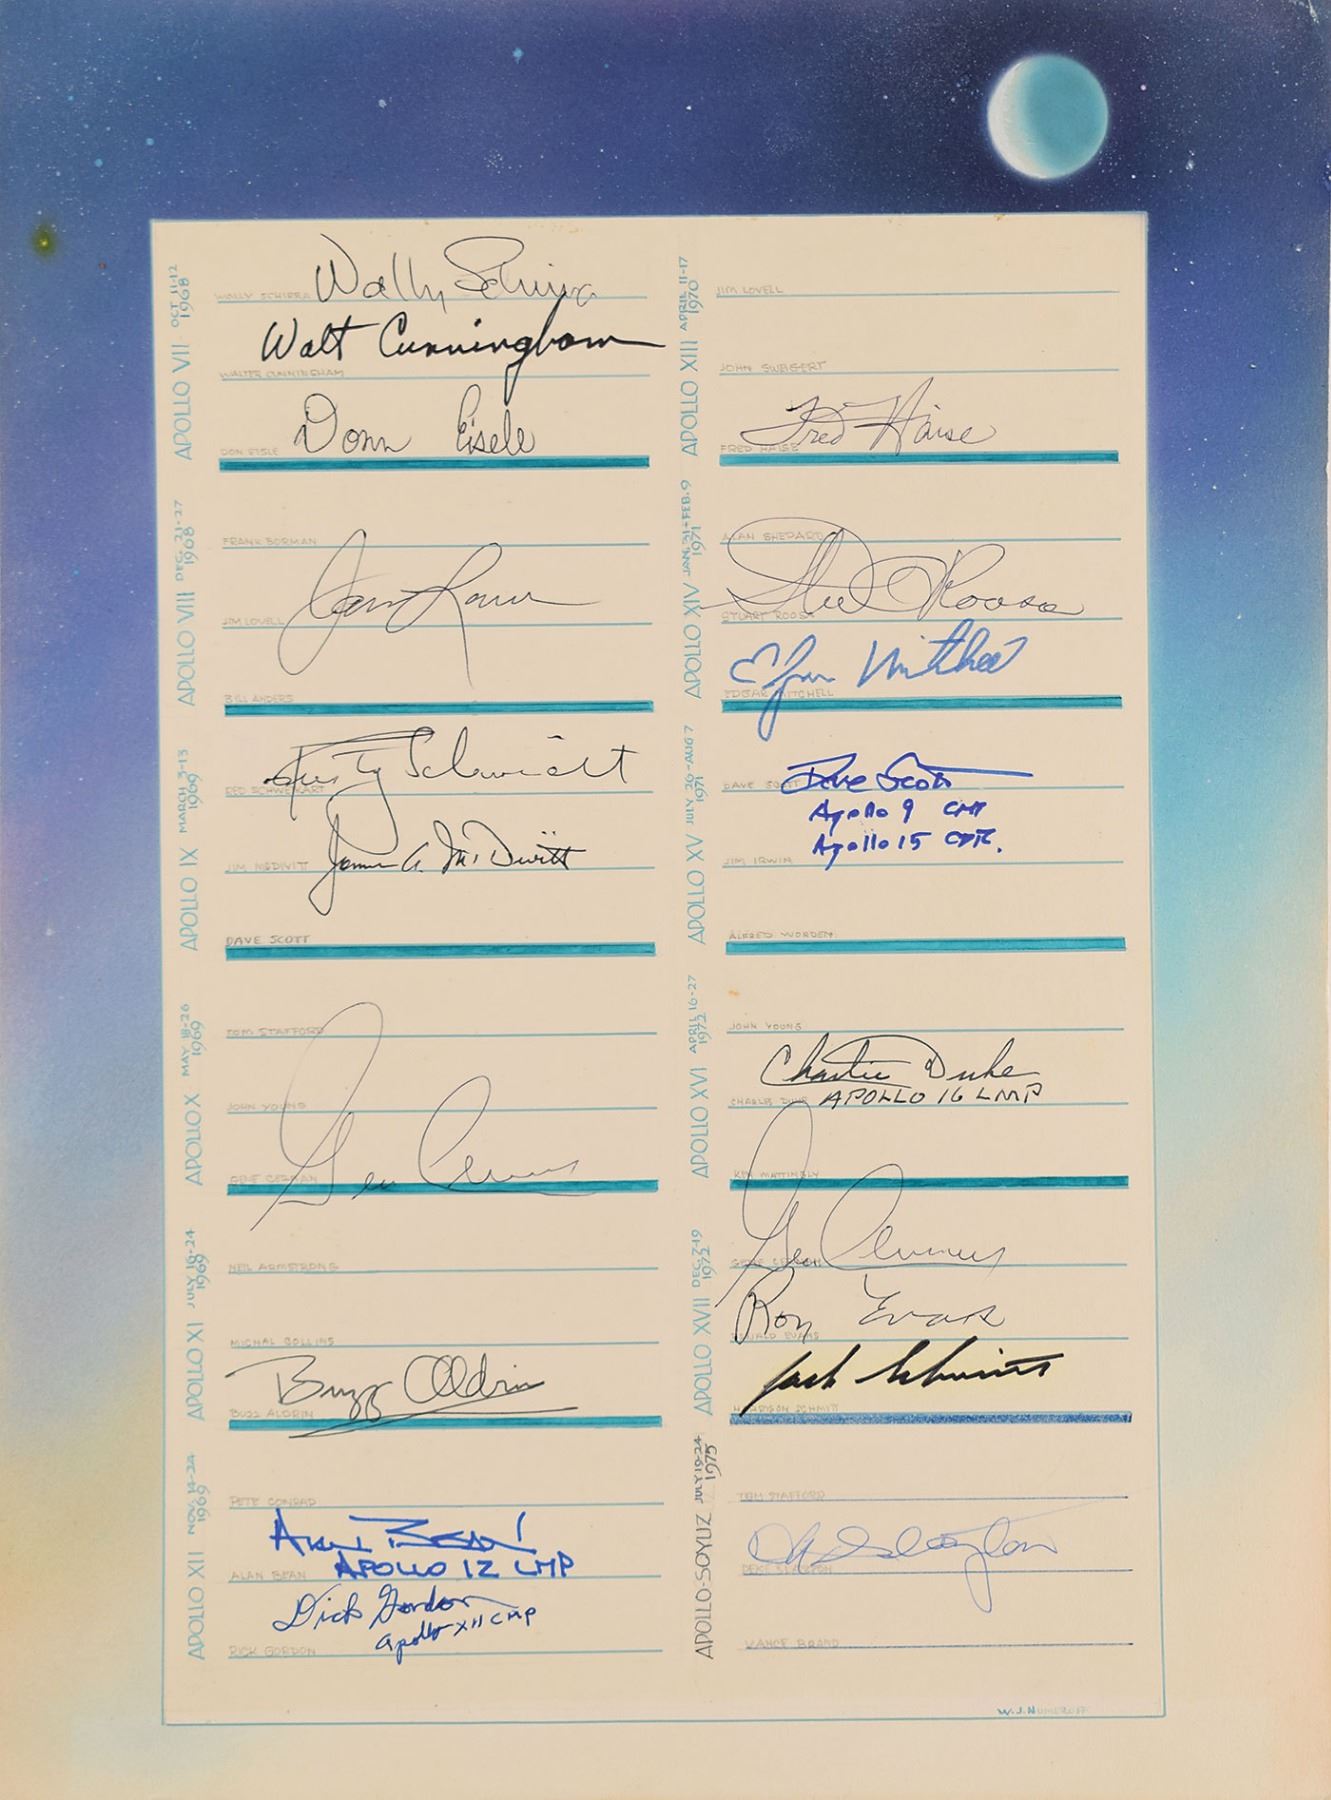 APOLLO VII OCT 11-12 1968
WALLY SCHIRRA Wally Schirra
Walt Cunningham
WALTER CUNNINGHAM
DON EISLE Donn Eisele
APOLLO VIII DEC. 21-27 1968
FRANK BORMAN
JIM LOVELL James Lovell
BILL ANDERS
APOLLO IX MARCH 3-13 1969
RED SCHWEIKART Rusty Schweickart
JIM McDIVITT James A. McDivitt
DAVE SCOTT
APOLLO X MAY 18-26 1969
TOM STAFFORD
JOHN YOUNG
GENE CERNAN Gene Cernan
APOLLO XI JULY 16-24 1969
NEIL ARMSTRONG
MICHAL COLLINS
Buzz Aldrin
BUZZ ALDRIN
APOLLO XII NOV. 14-24 1969
PETE CONRAD
Alan Bean
APOLLO 12 LMP
ALAN BEAN
Dick Gordon
Apollo XII CMP
RICK GORDON
APOLLO XIII APRIL 11-17 1970
JIM LOVELL
JOHN SWEIGERT
Fred Haise
FRED HAISE
APOLLO XIV JAN. 31-FEB. 9 1971
ALAN SHEPARD
Stu Roosa
STUART ROOSA
Edgar Mitchell
EDGAR MITCHELL
APOLLO XV JULY 26-AUG 7 1971
DAVE SCOTT Dave Scott
Apollo 9 CMP
Apollo 15 CDR.
JIM IRWIN
ALFRED WORDEN
APOLLO XVI APRIL 16-27 1972
JOHN YOUNG
Charlie Duke
CHARLES DUKE APOLLO 16 LMP
KEN MATTINGLY
APOLLO XVII DEC. 7-19 1972
GENE CERNAN Gene Cernan
Ron Evans
RONALD EVANS
Jack Schmitt
HARRISON SCHMITT
APOLLO-SOYUZ JULY 19-24 1975
TOM STAFFORD
DK Slayton
DEKE SLAYTON
VANCE BRAND
W.J. NUMEROFF